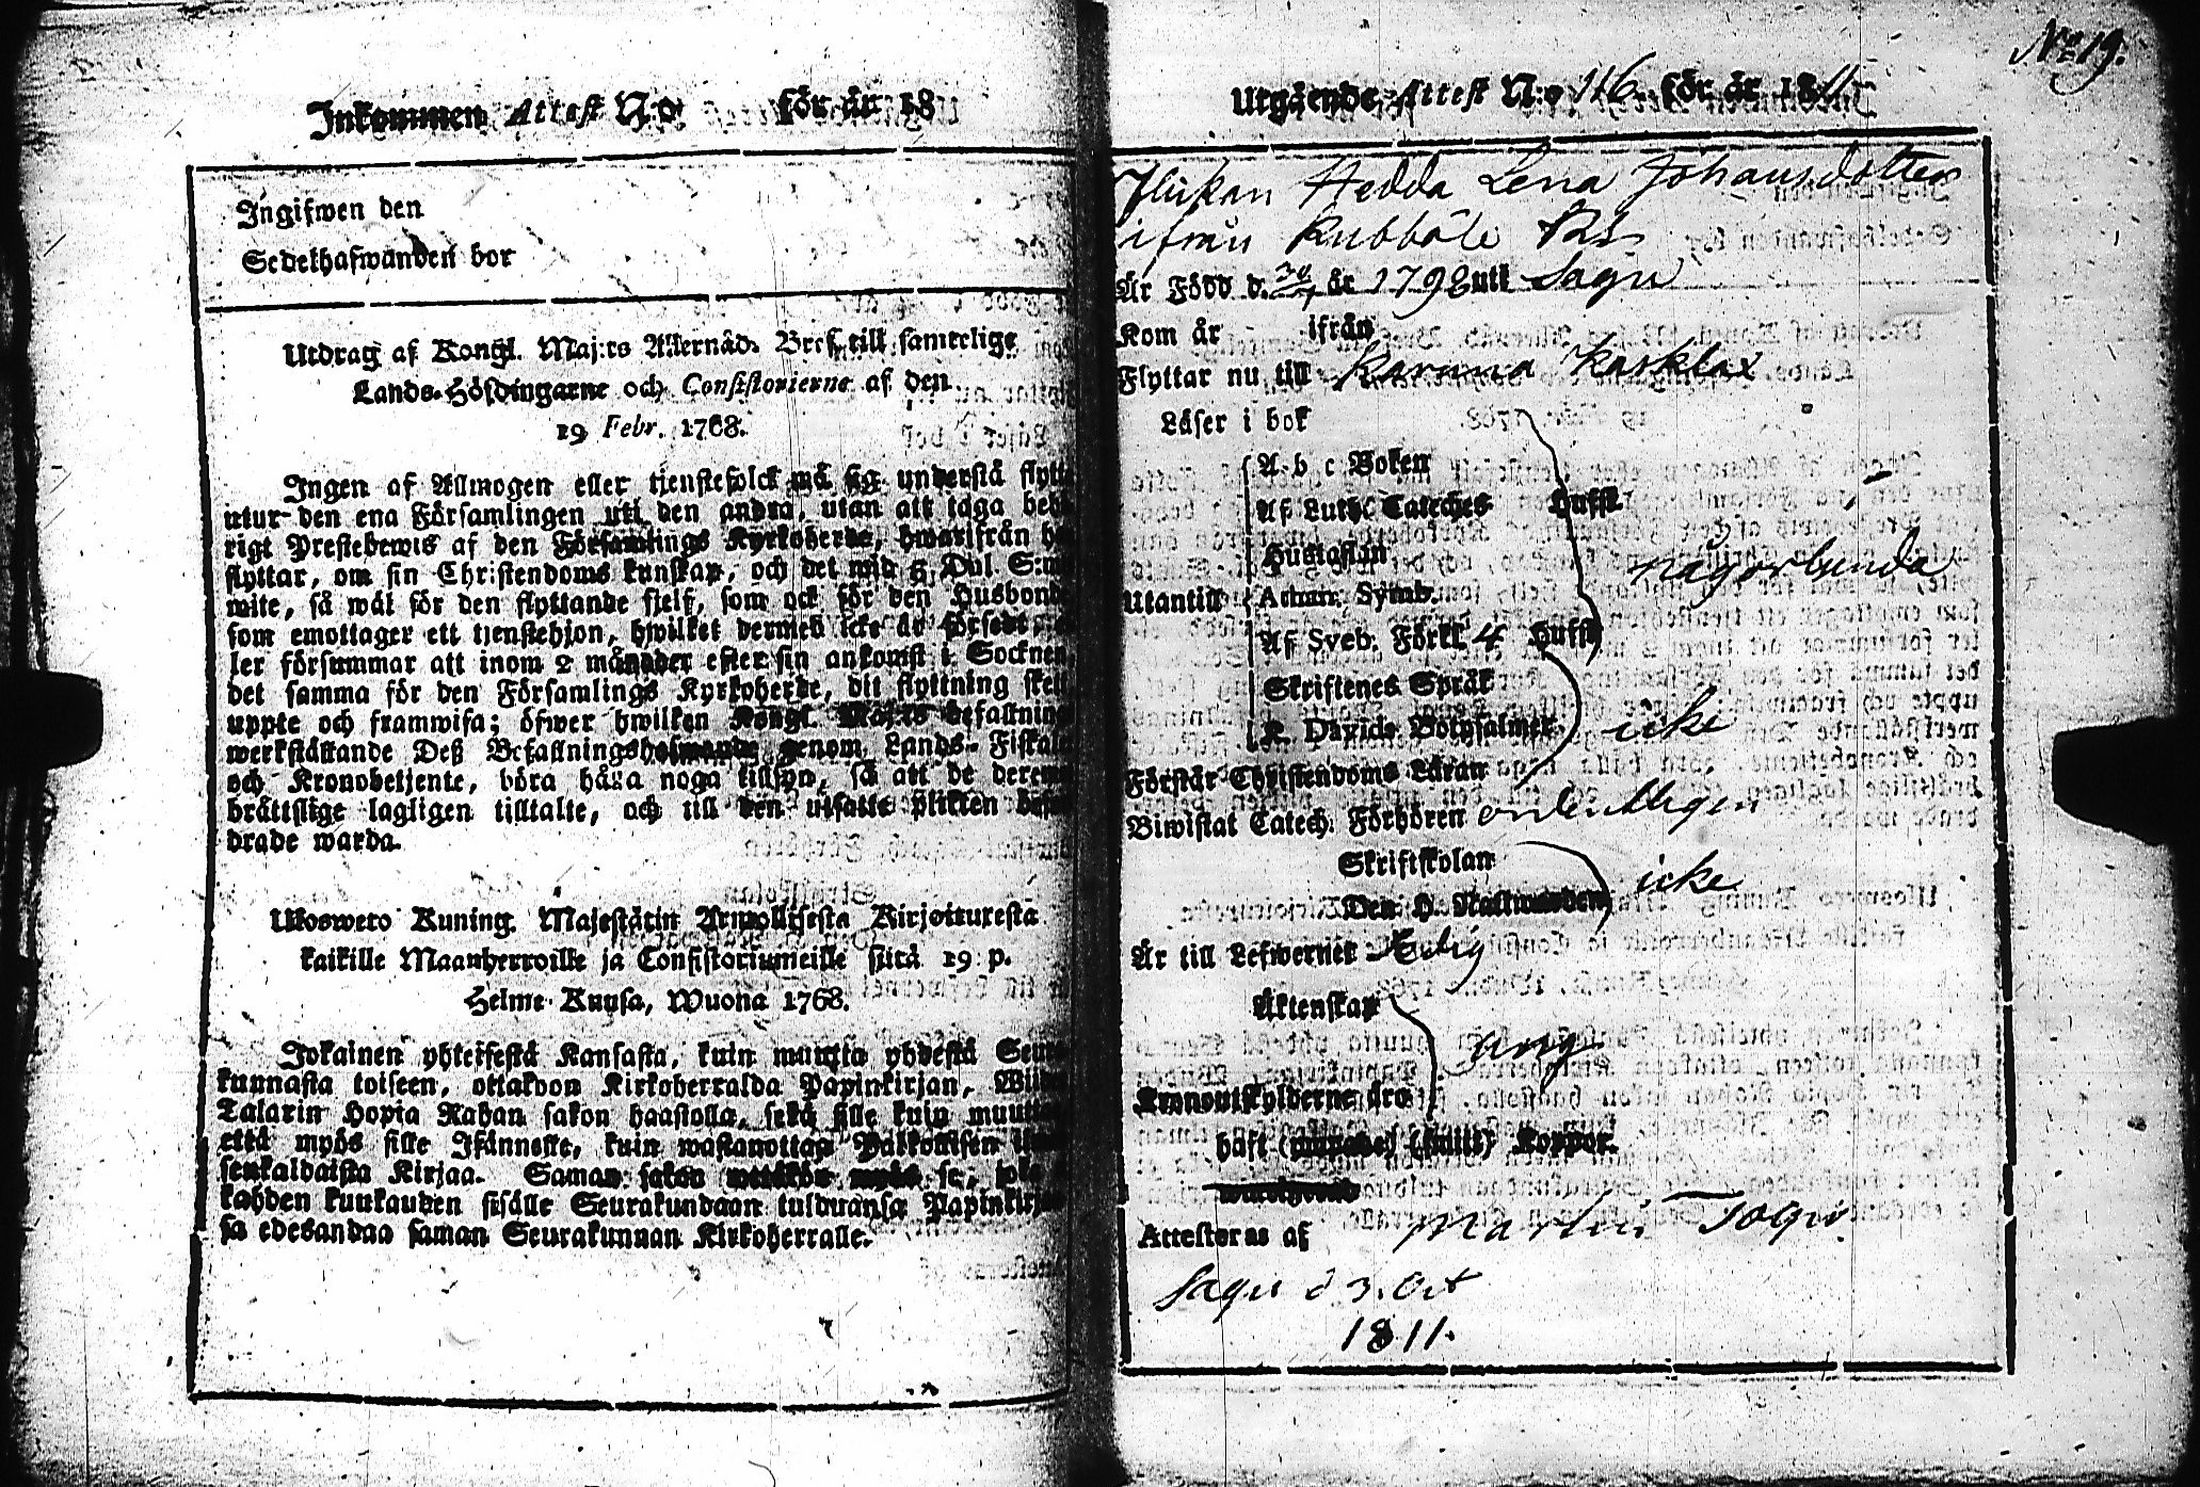 Inkommen Attest N:o för år 18
Ingifwen den
Sedelhafwanden bor
Utdrag af Kongl. Maj:ts Allernåd. Bref till samtelige
Lands-Höfdingarne och Consistorierne af den
19 Febr. 1768.
Ingen af Allmogen eller tjenstefolck må sig understå flytta
utur den ena Församlingen uti den andra, utan att taga behö-
rigt Prestebewis af den Församlings Kyrkoherde, hwarifrån han
flyttar, om sin Christendoms kunskap, och det wid 5 Dal. S:mt
wite, så wäl för den flyttande sjelf, som ock för den Husbonde
som emottager ett tjenstehjon, hwilket dermed icke är försedt,
ler försummar att inom 2 månader efter sin ankomst i Socknen,
det samma för den Församlings Kyrkoherde, dit flyttning skett
uppte och framwisa; öfwer hwilken Kongl. Maj:ts befallning
werkställande Deß Befallningshafwande genom Lands-Fiskaler
och Kronobetjente, böra hafwa noga tillsyn, så att de deremot
brättslige lagligen tilltalte, och till den utsatte plikten befor-
drade warda.
Ulosweto Kuning. Majestätin Armollisesta Kirjoituxesta
kaikille Maanherroille ja Consistoriumeille siitä 19 p.
Helme Kuusa, Wuona 1768.
Jokainen yhteisestä Kansasta, kuin muutta yhdestä Seura-
kunnasta toiseen, ottakoon Kirkoherralda Papinkirjan, Wiiden
Talarin Hopia Rahan sakon haastolla, sekä sille kuin muutta,
että myös sille Isännälle, kuin wastanottaa Palkollisen ilman
senkaldaista Kirjaa. Saman sakon wetäkön myös se, joka ei
kahden kuukauden sisälle Seurakundaan tulduansa Papinkirjan-
sa edesandaa saman Seurakunnan Kirkoherralle.
No 19.
Utgående Attest N:o 116. för år 1811
Flickan Hedda Lena Johansdotter
ifrån Kubböle
Är Född d. 30 år 1798 uti Sagu
Kom år ifrån
Flyttar nu till Karuna Karklax
Läser i bok
A b c Boken
Af Luth. Cateches Hufst.
Hustaflan
någorlunda
Utantill Athan. Symb.
Af Sveb. Förkl. 4 Hufst
Skriftenes Språk
K. Davids Botpsalmer icke
Förstår Christendoms Läran
Biwistat Catech. Förhören ordentligen
Skriftskolan
icke
Den H. Nattwarden
Är till Lefwernet Ledig
Äktenskap
ung
Kronoutskylderne äro
haft (naturlige) Koppor.
Attesteras af Martin
Sagu d 3. Oct
1811.